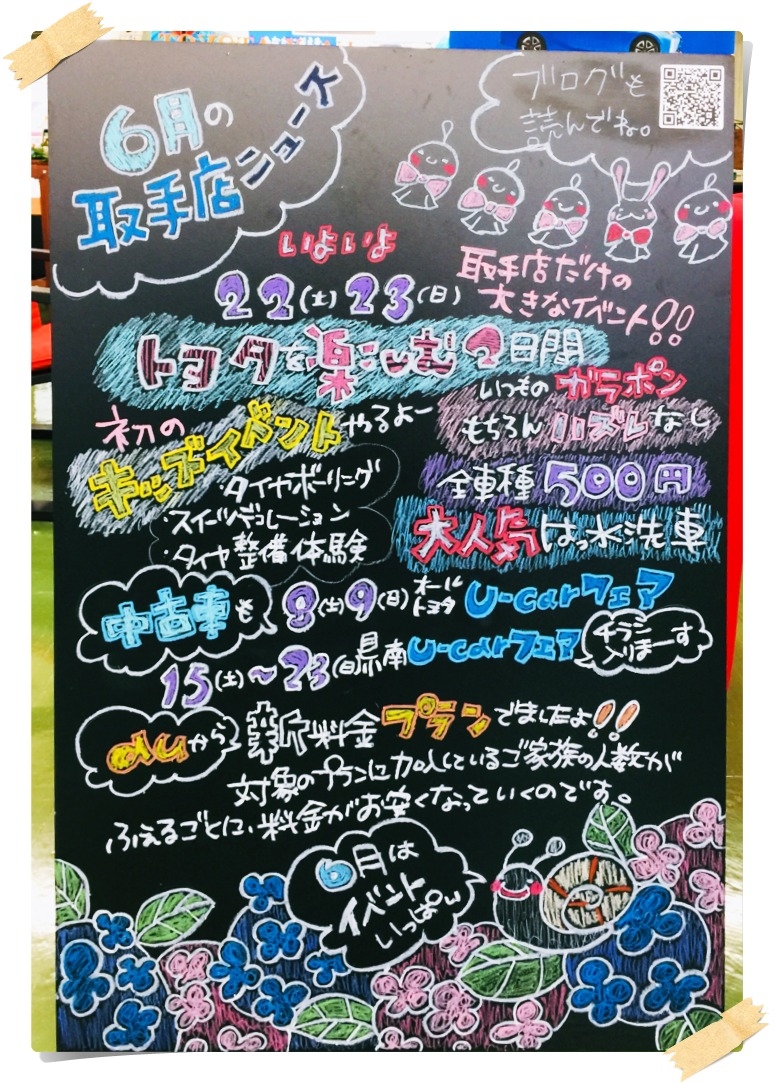 6月の
取手店ニュース
ブログも
読んでね。
いよいよ
22(土)23(日)
取手店だけの
大きなイベント!!
トヨタを楽しむ2日間
初の
キッズイベントやるよー
・タイヤボーリング
・スイーツデコレーション
・タイヤ整備体験
いつものガラポン
もちろんハズレなし
全車種500円
大人気はっ水洗車
中古車も
8(土)9(日)オールトヨタU-carフェア
15(土)〜23(日)県南U-carフェア
チラシ
入りまーす
auから
新料金プランでましたよ!!
対象のプランに加入しているご家族の人数が
ふえるごとに、料金がお安くなっていくのです。
6月は
イベント
いっぱい